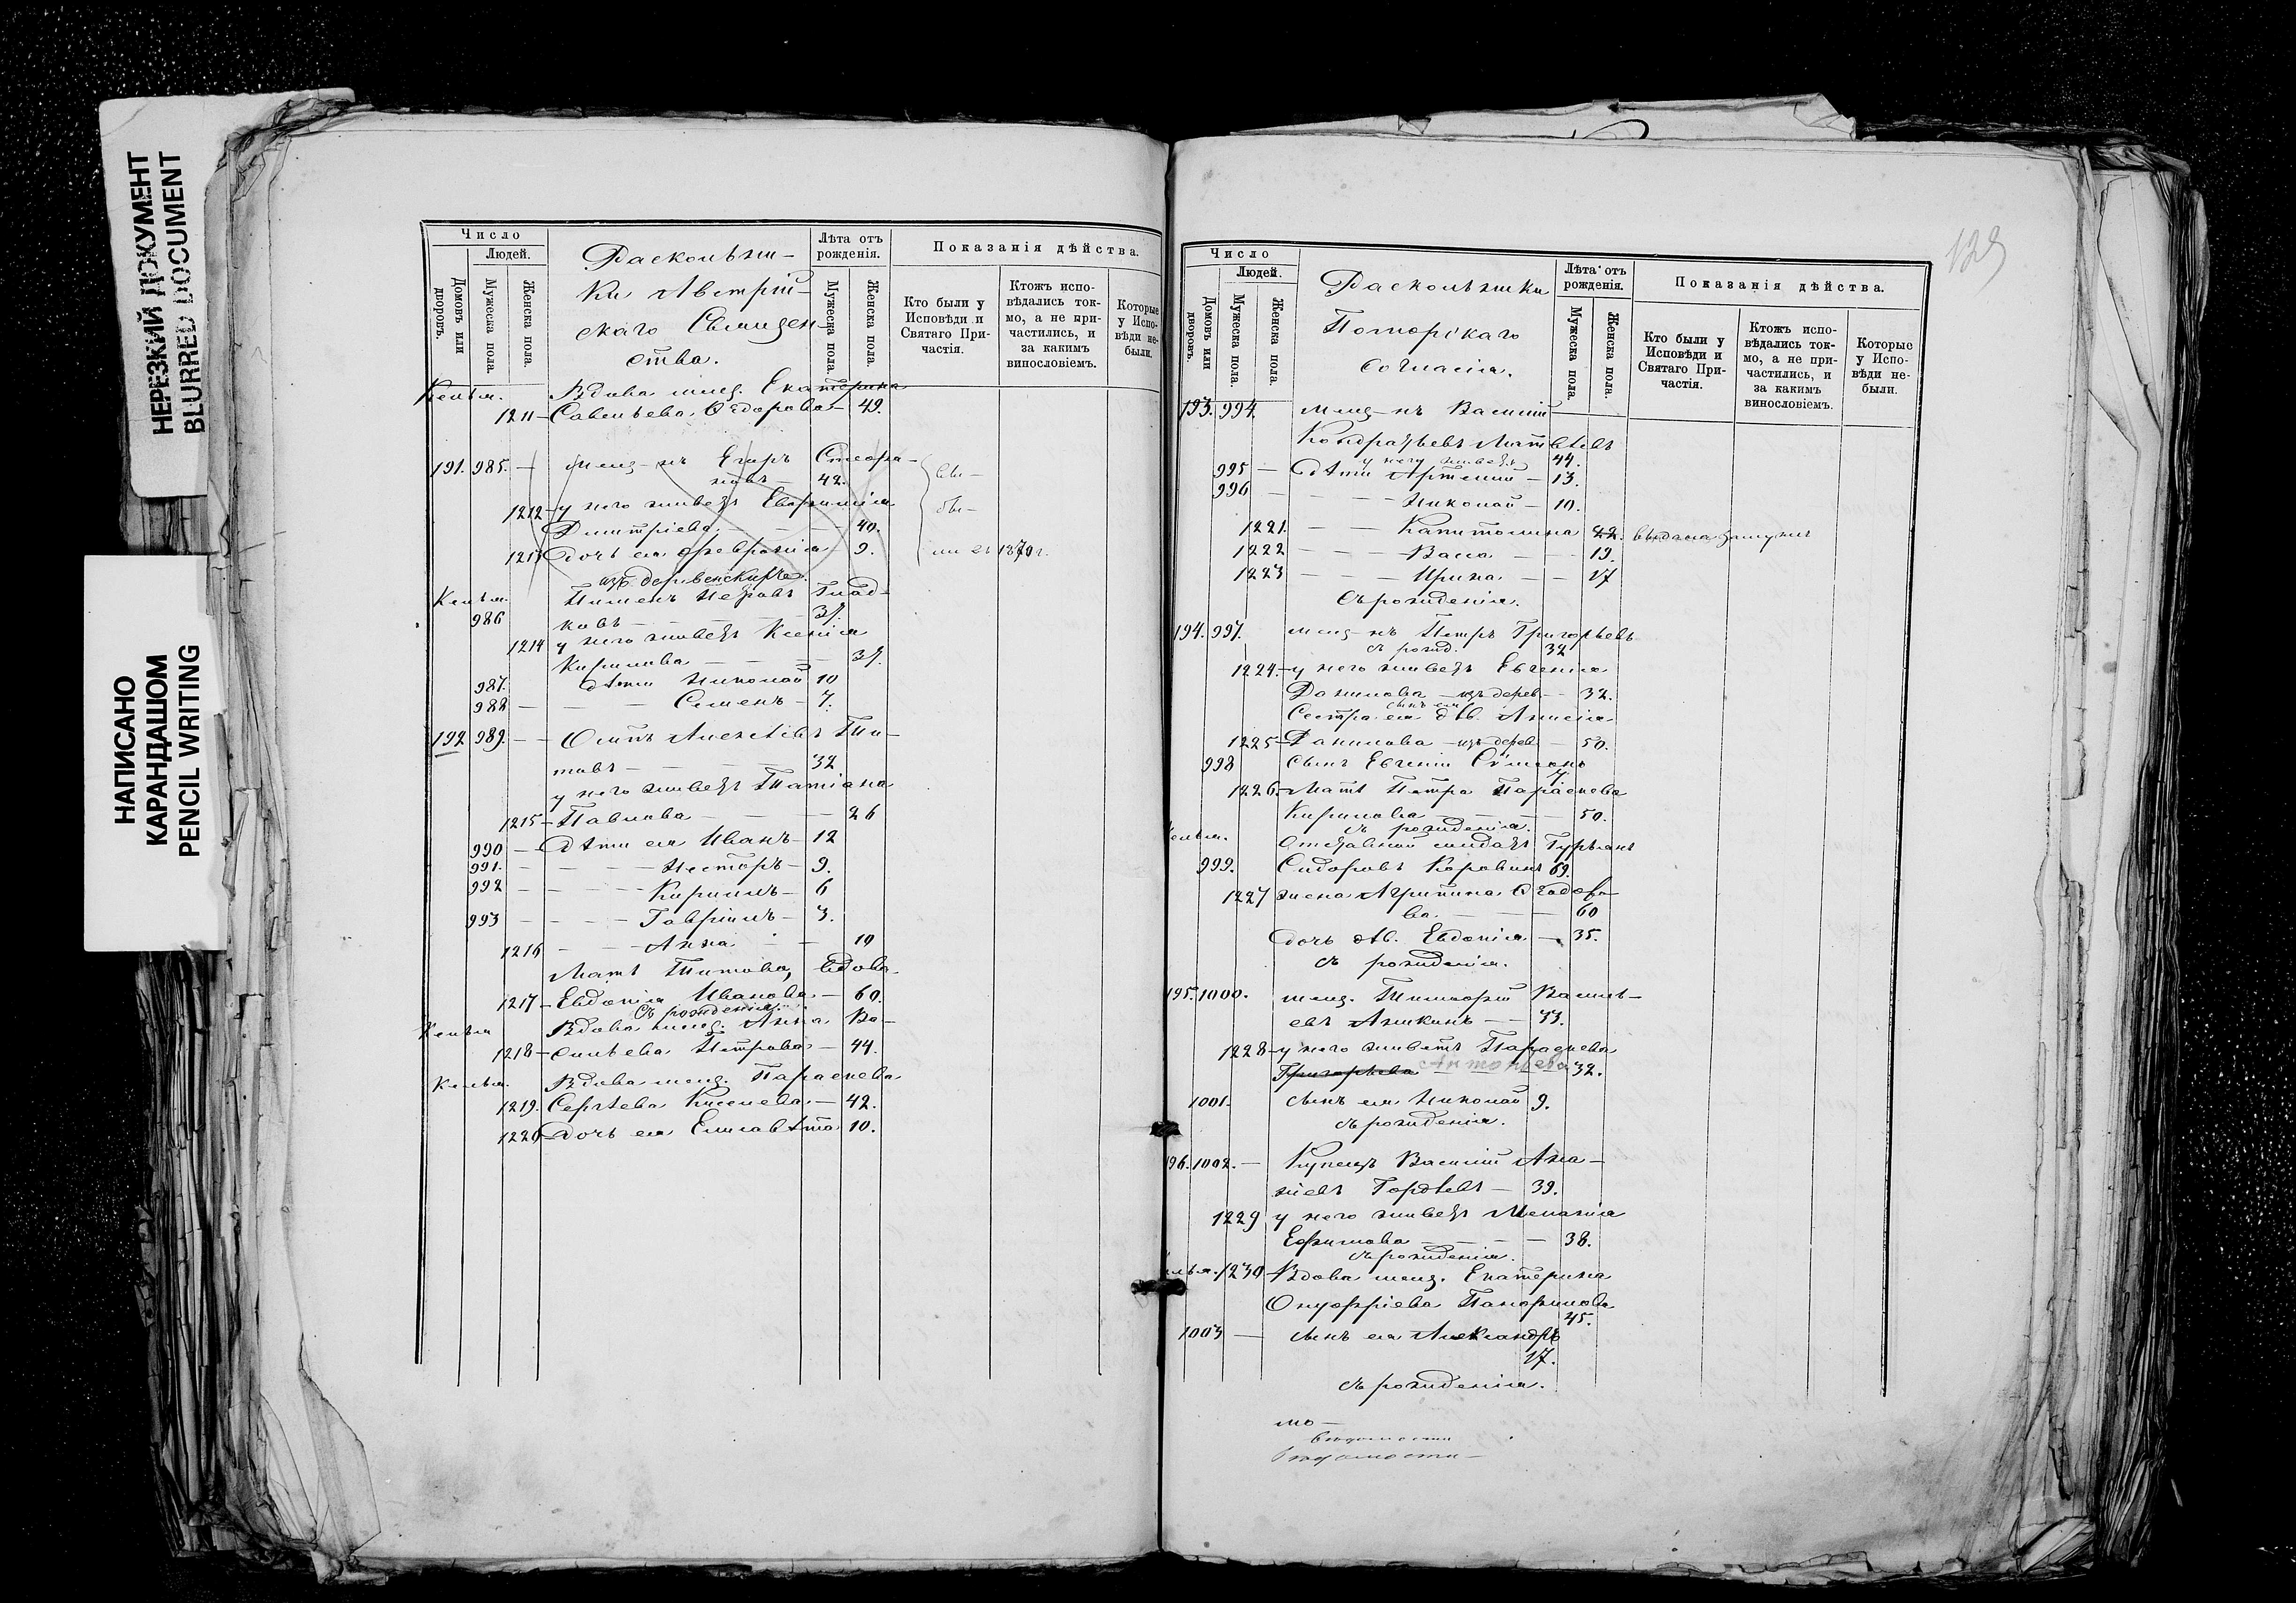 НЕРЕЗКИЙ ДОКУМЕНТ
BLURRED DOCUMENT
НАПИСАНО
КАРАНДАШОМ
PENCIL WRITING
Число
Людей.
Домовъ или дворовъ.
Мужеска пола.
Женска пола.
Раскольни-
ки Австрій-
скаго Священ-
ства.
Лѣта отъ
рожденія.
Мужеска пола.
Женска пола.
Показанія дѣйства.
Кто были у
Исповѣди и
Святаго При-
частія.
Ктожъ испо-
вѣдались ток-
мо, а не при-
частились, и
за какимъ
винословіемъ.
Которые
у Испо-
вѣди не-
были.
Келья. Вдова мещ. Екатерина
1211 - Савельева Ѳедорова - 49.
191. 985. - Мещ-нъ Егоръ
42.
1212 - у него живетъ Евфимія
Дмитріева - 40.
1213 дочь ея Февронія 9. 1870 г.
изъ деревенскихъ.
Келья. Пименъ Глад-
986 ковъ
1214 у него живетъ Ксенія
Кирилова
987. дѣти Николай 10
988 - - Семенъ - 7.
192 989. - - Осипъ Алексѣевъ Ти-
товъ - 32
у него живетъ Татіана
1215 - Павлова - 26
990 - дѣти ея Иванъ - 12
991. - - Несторъ - 9.
992 - - Кирилъ - 6
993 - - Гавріилъ - 3.
1216 - - Анна - 10
Мать Титова, вдова
1217 - Евдокія Иванова - 60.
Съ рожденія.
Келья Вдова мещ. Анна Ва-
1218 - сильева Петрова - 44.
Келья. Вдова мещ. Параскева
1219. Сергѣева Киселева - 42.
1220 дочь ея Елисавѣта 10.
129
Число
Людей.
Домовъ или дворовъ.
Мужеска пола.
Женска пола.
Раскольники
Поморскаго
согласія.
Лѣта отъ
рожденія.
Мужеска пола.
Женска пола.
Показанія дѣйства.
Кто были у
Исповѣди и
Святаго При-
частія.
Ктожъ испо-
вѣдались ток-
мо, а не при-
частились, и
за какимъ
винословіемъ.
Которые
у Испо-
вѣди не-
были.
193. 994 мещ-нъ Василій
Кондратьевъ
у него живетъ 44.
995 - дѣти Артемій - 13.
996 - - Николай - 10.
1221. - - Капитолина 22. выдана замужъ
1222 - - Васса - 19.
1223 - - Ирина - 17
Съ рожденія.
194. 997. мещ-нъ Петръ Григорьевъ
съ рожд. 32
1224. - у него живетъ Евгенія
Данилова - изъ дерев. - 32.
Сестра ея дѣв. Анисія
1225 - Данилова - изъ дерев. - 50.
998 сынъ Евгеніи
7.
1226. - Мать Петра Параскева
Кирилова - 50.
съ рожденія.
Келья. Отставной солдатъ
999. Сидоровъ 69.
1227 жена Агрипина Ѳедоро-
ва. - 60
дочь дѣв. Евдокія - 35.
съ рожденія.
195. 1000. мещ. Тимофей Василь-
евъ Аникинъ - 33.
1228 - у него живетъ Параскева
Григорьева Антонова 32.
1001. сынъ ея Николай 9.
съ рожденія.
196. 1002. - Купецъ Василій Ана-
ніевъ Гордѣевъ - 39.
1229 у него живетъ Меланія
Ефимова - 38.
съ рожденія.
Келья. 1230 - Вдова мещ. Екатерина
Онуфріева Панфилова
45.
1003 - сынъ ея Александръ
17.
съ рожденія.